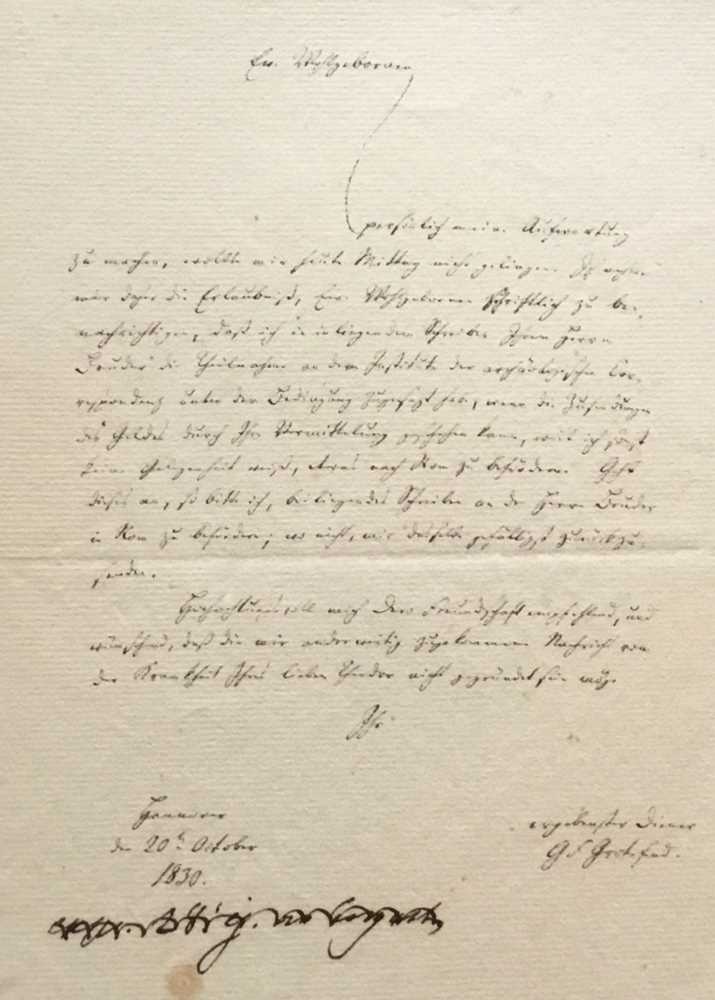 Ew. Wohlgeboren
persönlich meine Aufwartung
zu machen, wollte mir heute Mittag nicht gelingen.
mir daher die Erlaubniß, Ew. Wohlgeboren schriftlich zu be-
nachrichtigen, daß ich in inliegendem Schreiben Ihrem Herrn
Bruder die Theilnahme an dem Institute der archäologischen Cor-
respondenz unter der Bedingung zugesagt habe, wenn die Zusendungen
des Geldes durch Ihre Vermittelung geschehen kann, weil ich sonst
keine Gelegenheit weiß, etwas nach Rom zu befördern. Geht
dieses an, so bitte ich, beiliegendes Schreiben an den Herrn Bruder
in Rom zu befördern; wo nicht, mir dasselbe gefälligst zurückzu-
senden.
Hochachtungsvoll mich Dero Freundschaft empfehlend, und
wünschend, daß die mir anderweitig zugekommene Nachricht von
der Krankheit Ihres lieben Theodor nicht gegründet sein möge
Ihr
Hannover
den 20t. October
1830.
ergebenster Diener
G F Grotefend.